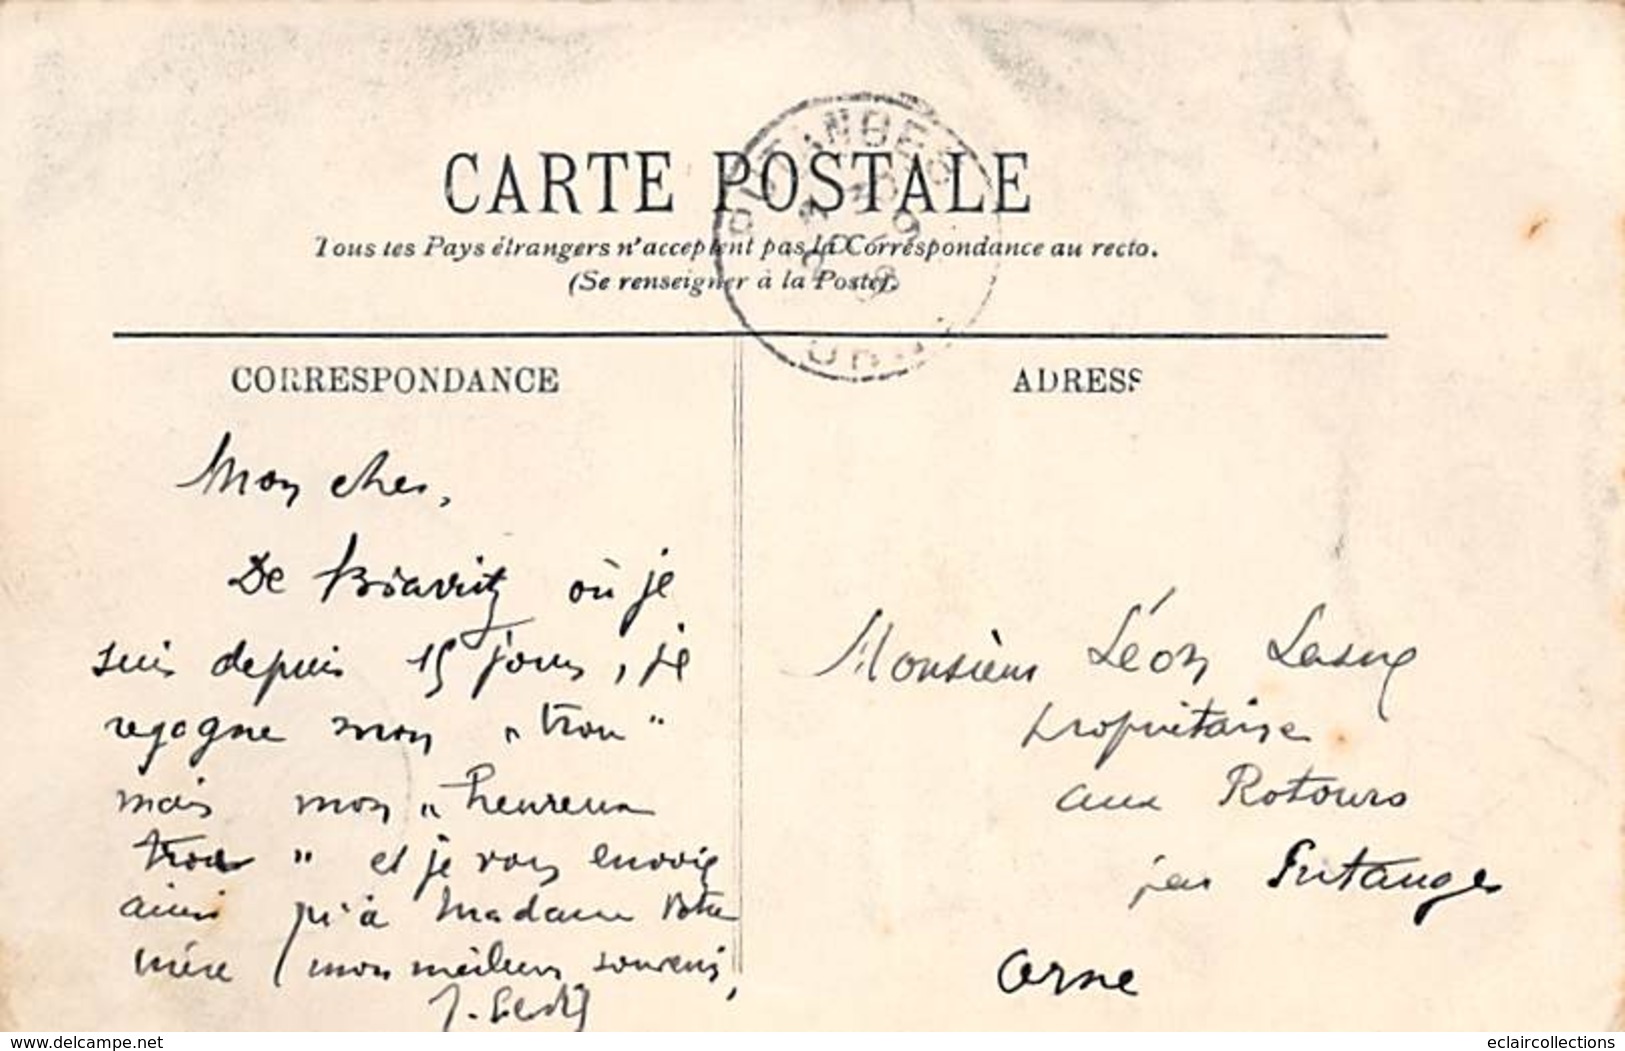 CARTE POSTALE
Tous les Pays étrangers n'acceptent pas la Correspondance au recto.
(Se renseigner à la Poste).
PUTANGES
ORNE
CORRESPONDANCE
ADRESS
Mon cher,
De Biarritz où je
suis depuis 15 jours, je
regagne mon "trou"
mais mon "heureux
trou" et je vous envoie
ainsi qu'à Madame votre
mère mon meilleur souvenir,
Monsieur Léon
propriétaire
aux Rotours
par Putanges
Orne
www.delcampe.net
eclaircollections